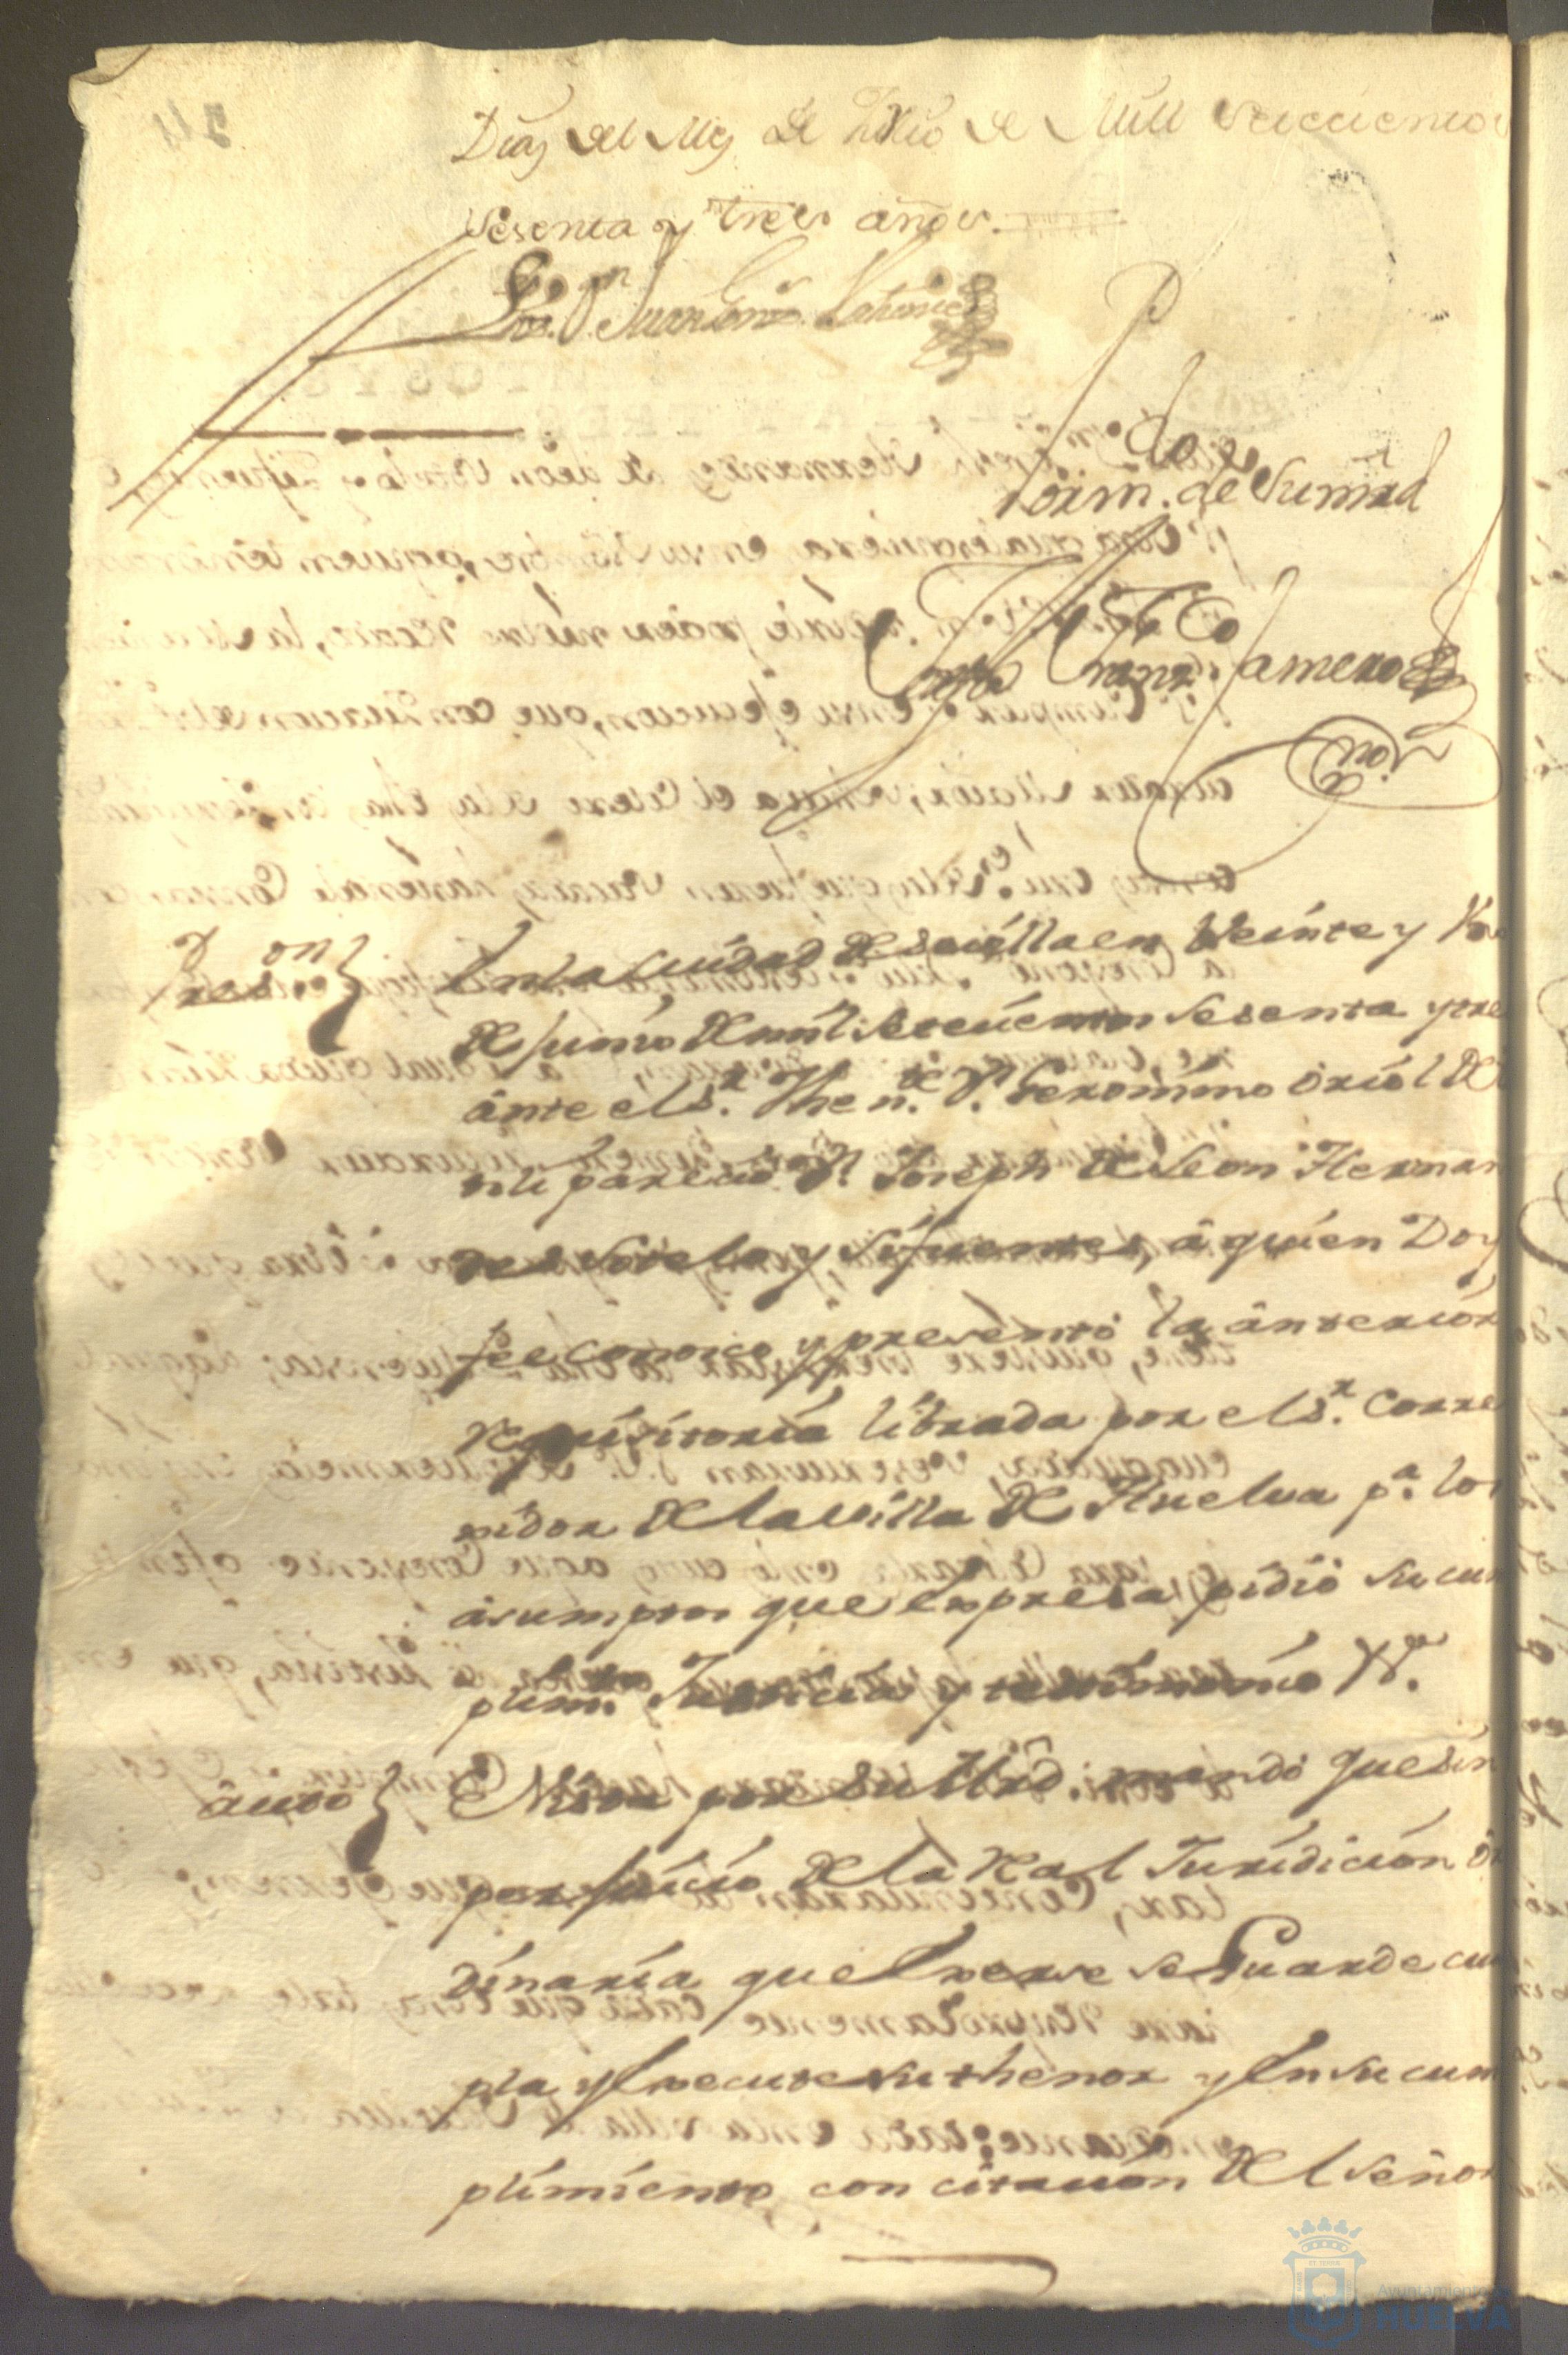 Dias del Mes de Junio de Mill Setecientos
sesenta y tres años.
Lizdo. Dn. Juan
Por m.do de Su mrd
Gamero
Press.on
En la Ciudad de Sevilla en Veinte y
de Junio de mil setecientos sesenta y tre
ante el Sr. Then.te Dn. Geronimo Oriol de
parecio Dn. Joseph de Leon Hernan
des Sotelo y Sifuentes, â quien Doy
fee conosco y presentó la anterior
requisitoria librada por el Sr. Corre
xidor de la Villa de Huelua pa. los
asumptos que expresa pidió su cum
plimto. Justicia y testimonio Va.
âuto
Vista por Su Mrd. mandó que sin
perjuicio de la Real Juridicion or
dinaria que Exerse se Guarde cum
pla y Execute su thenor y En su cum
plimiento con citacion del señor
Ayuntamiento
HUELVA